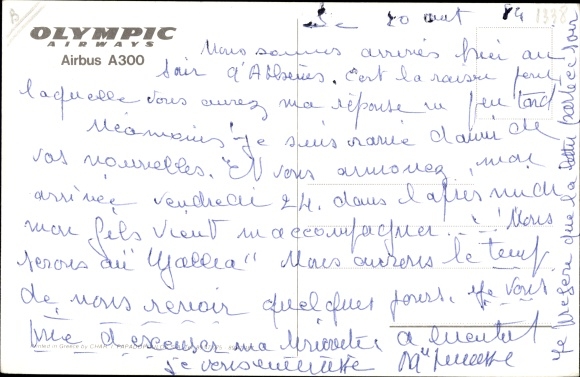 OLYMPIC
AIRWAYS
Airbus A300
20 août 84
1338
Nous sommes arrivés hier au
soir d'Athènes. c'est la raison pour
laquelle vous aurez ma réponse un peu tard
Néanmoins je suis ravie d'avoir de
vos nouvelles. Et vous annonez mon
arrivée vendredi 24. dans l'après midi
mon fils vient m'accompagner. Nous
serons au " " Nous aurons le temps
de nous revoir quelques jours. Je vous
prie d'excuser ma a bientot
je vous
je que la lettre par